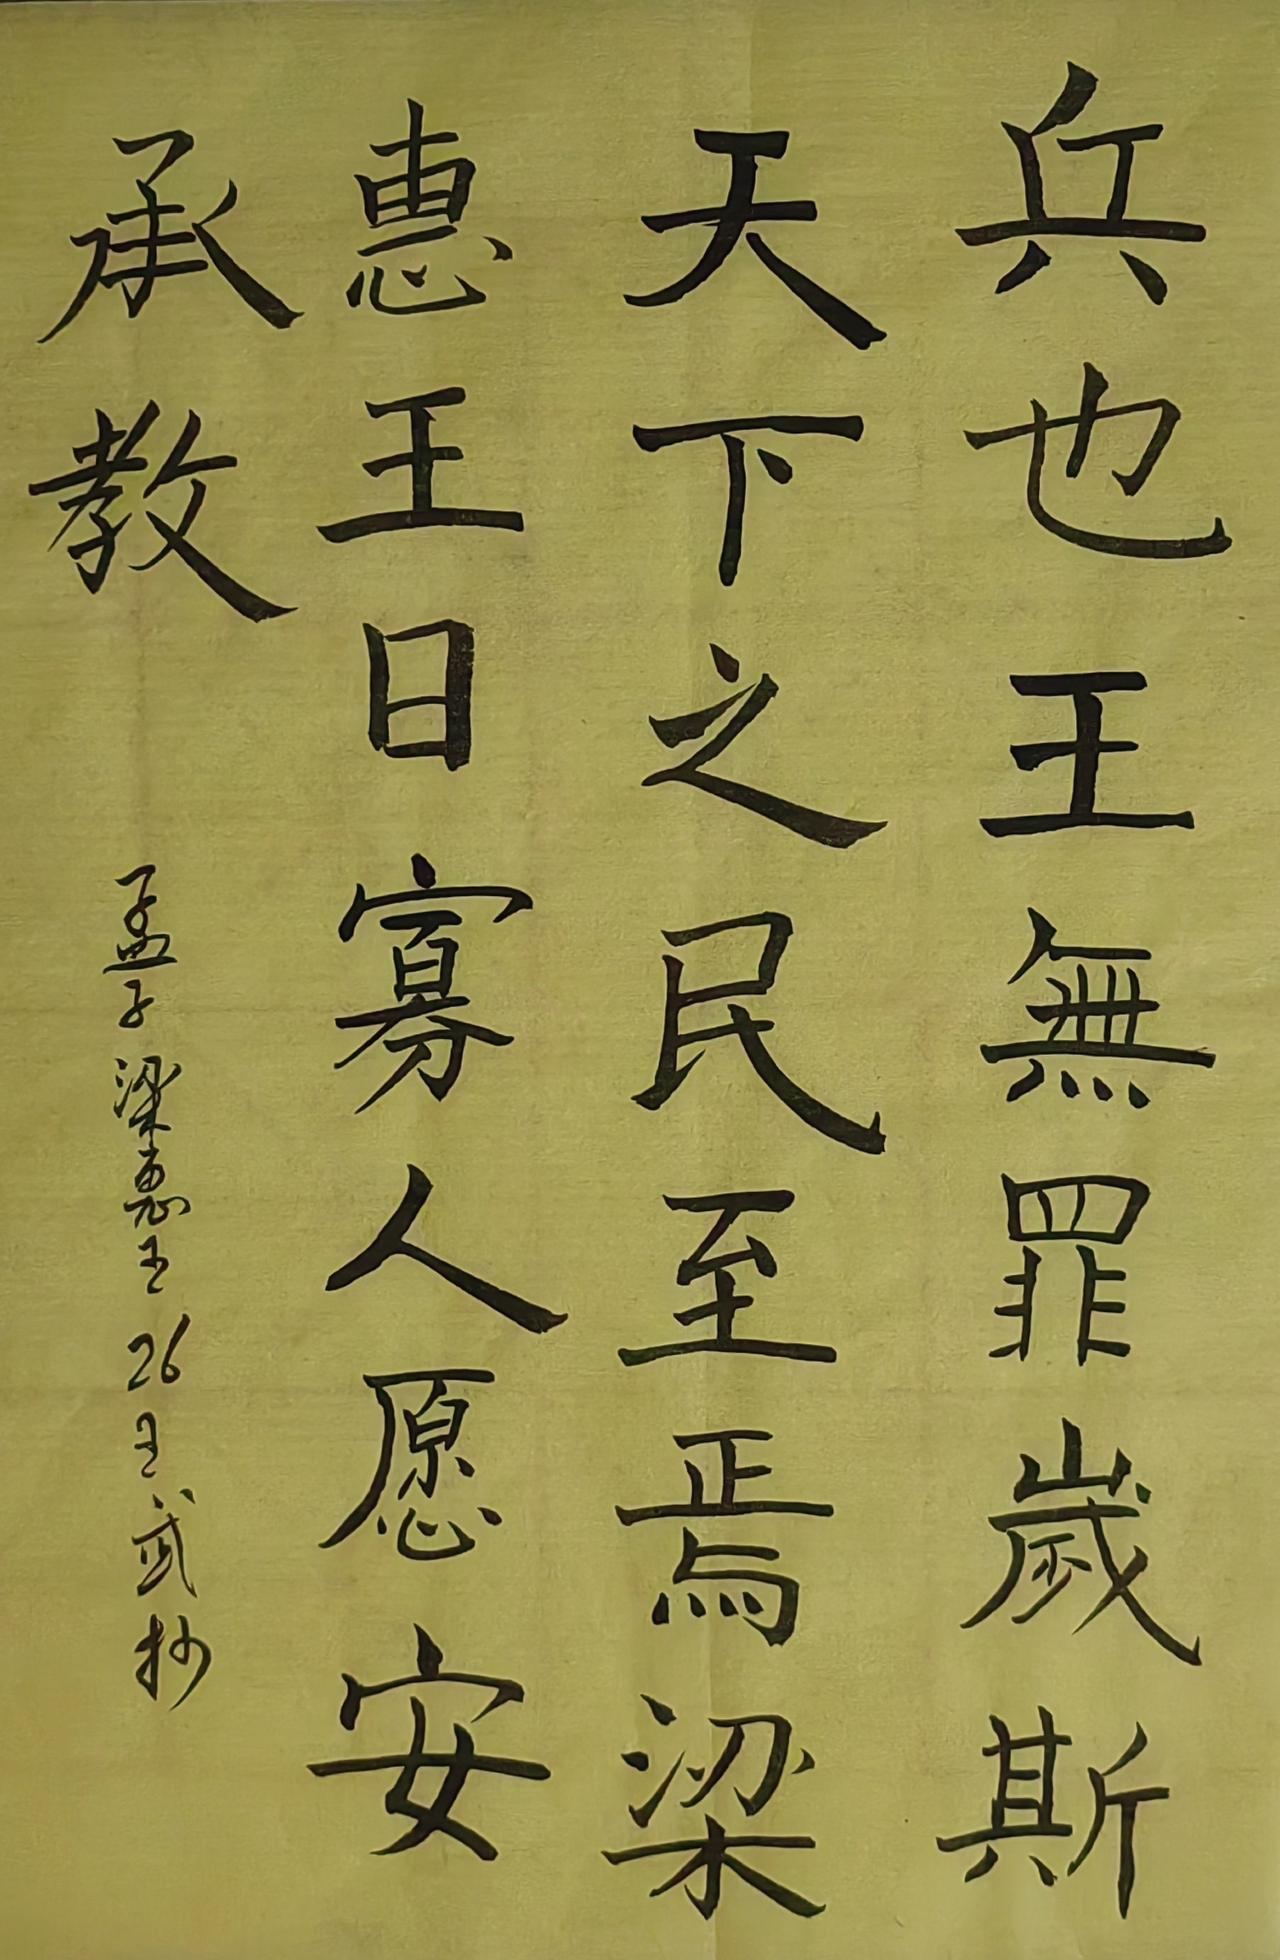 兵也王無罪歲斯
天下之民至焉梁
惠王曰寡人愿安
承教
孟子梁惠王26王武抄